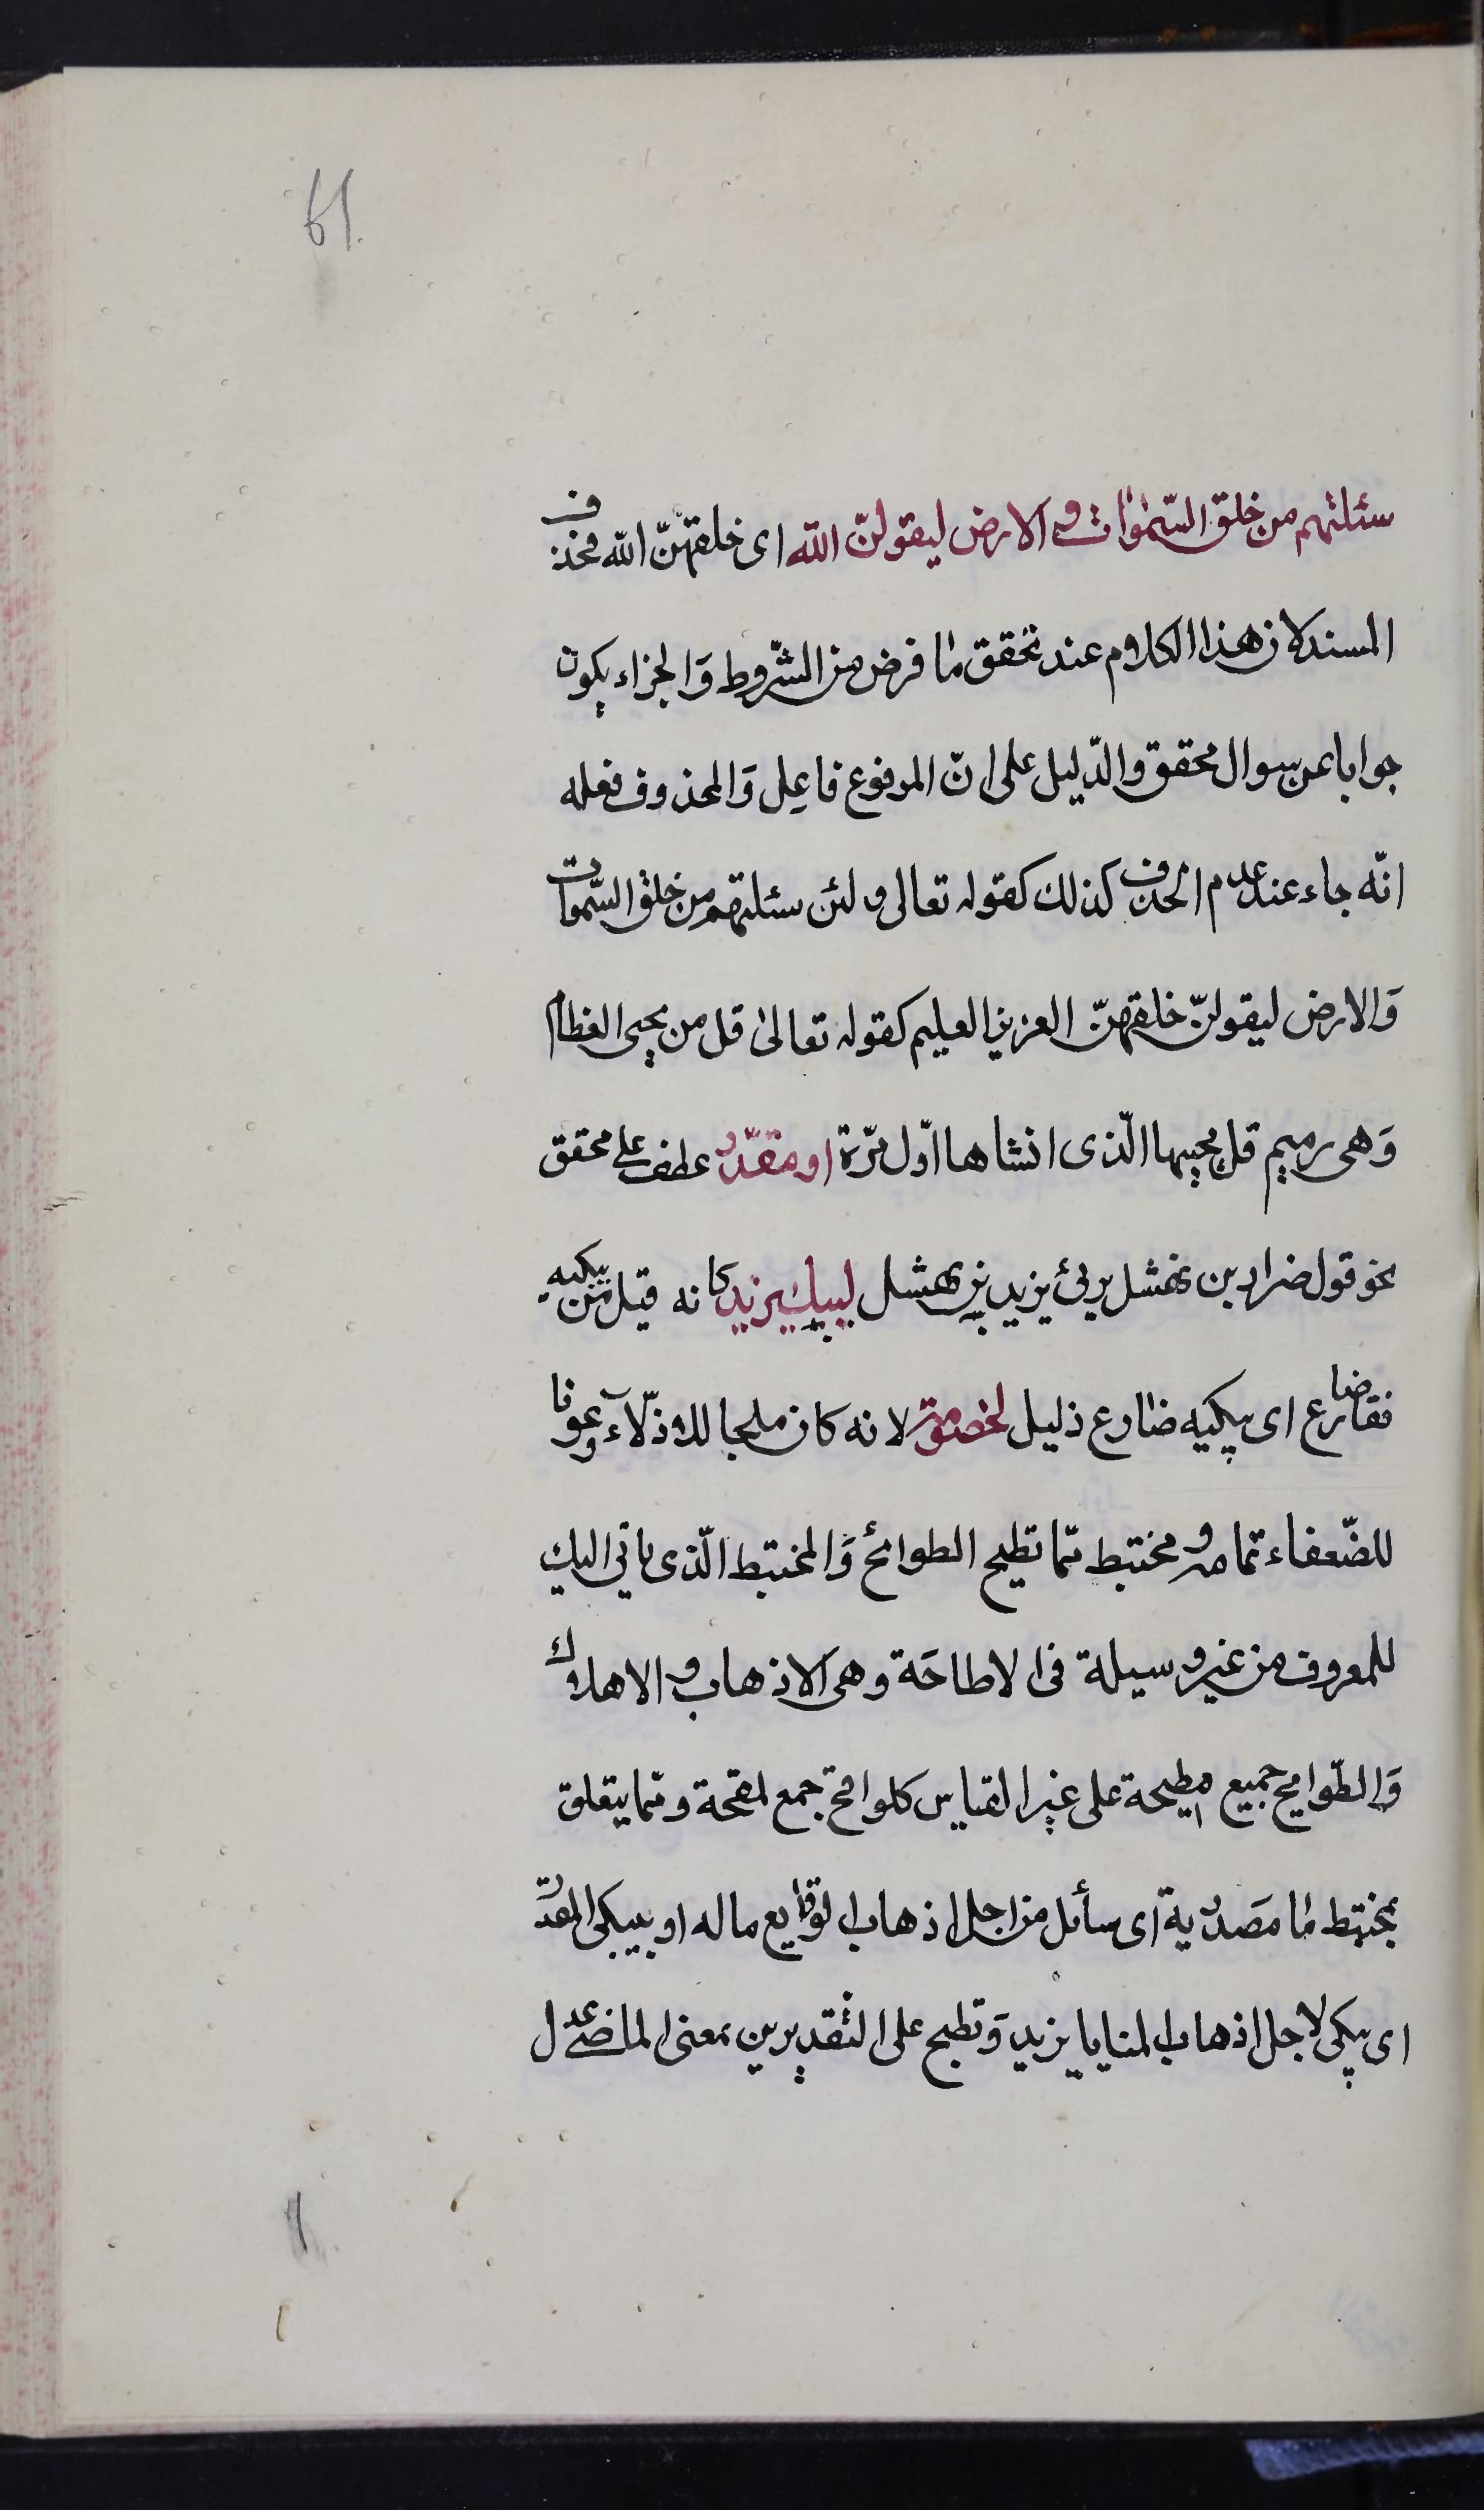 61
سئلتهم من خلق السّمٰوٰات و الارض ليقولنّ الله اى خلقهنّ الله فحذف
المسند لان هذا الكلام عند تحقق مٰا فرض من الشّروط وَالجزاء يكون
جوابا عن سوال محقق والدّليل على انّ المرفوع فاعِل وَالمحذوف فعله
انّه جاء عند عدم الحذف كذلك كقوله تعالى و لئن سئلتهم من خلق السّموات
وَالارض ليقولنّ خلقهنّ العزيز العليم كقوله تعالىٰ قل من يحيى العظام
وَهى رميم قل يحييها الّذى انشاها اوّل مرّة او مقدّر عطف على محقق
نحو قول ضرار بن نهشل يرثى يزيد بن نهشل ليبك يزيد كانه قيل من يبكيه
فقا ضارع اى يبكيه ضارع ذليل لخصومة لانه كان ملجا للاذلّاء وعونا
للضّعفاء تمامه و مختبط ممّا تطيح الطوائح وَالمختبط الّذى ياتى اليك
للمعروف من غير وسيلة فى الاطاحَة وهى الاذهاب و الاهلاك
وَالطّوايح جميع مطيحة على غير القياس كلواقح جمع لمقحة وممّا يتعلق
بمختبط مٰا مصَدرية اى سأئل من اجل اذهاب الوقايع ماله او بيبكى المقدّر
اى يبكى لاجل اذهاب المنايا يزيد وَتطيح على التّقديرين بمعنى الماضى عدل